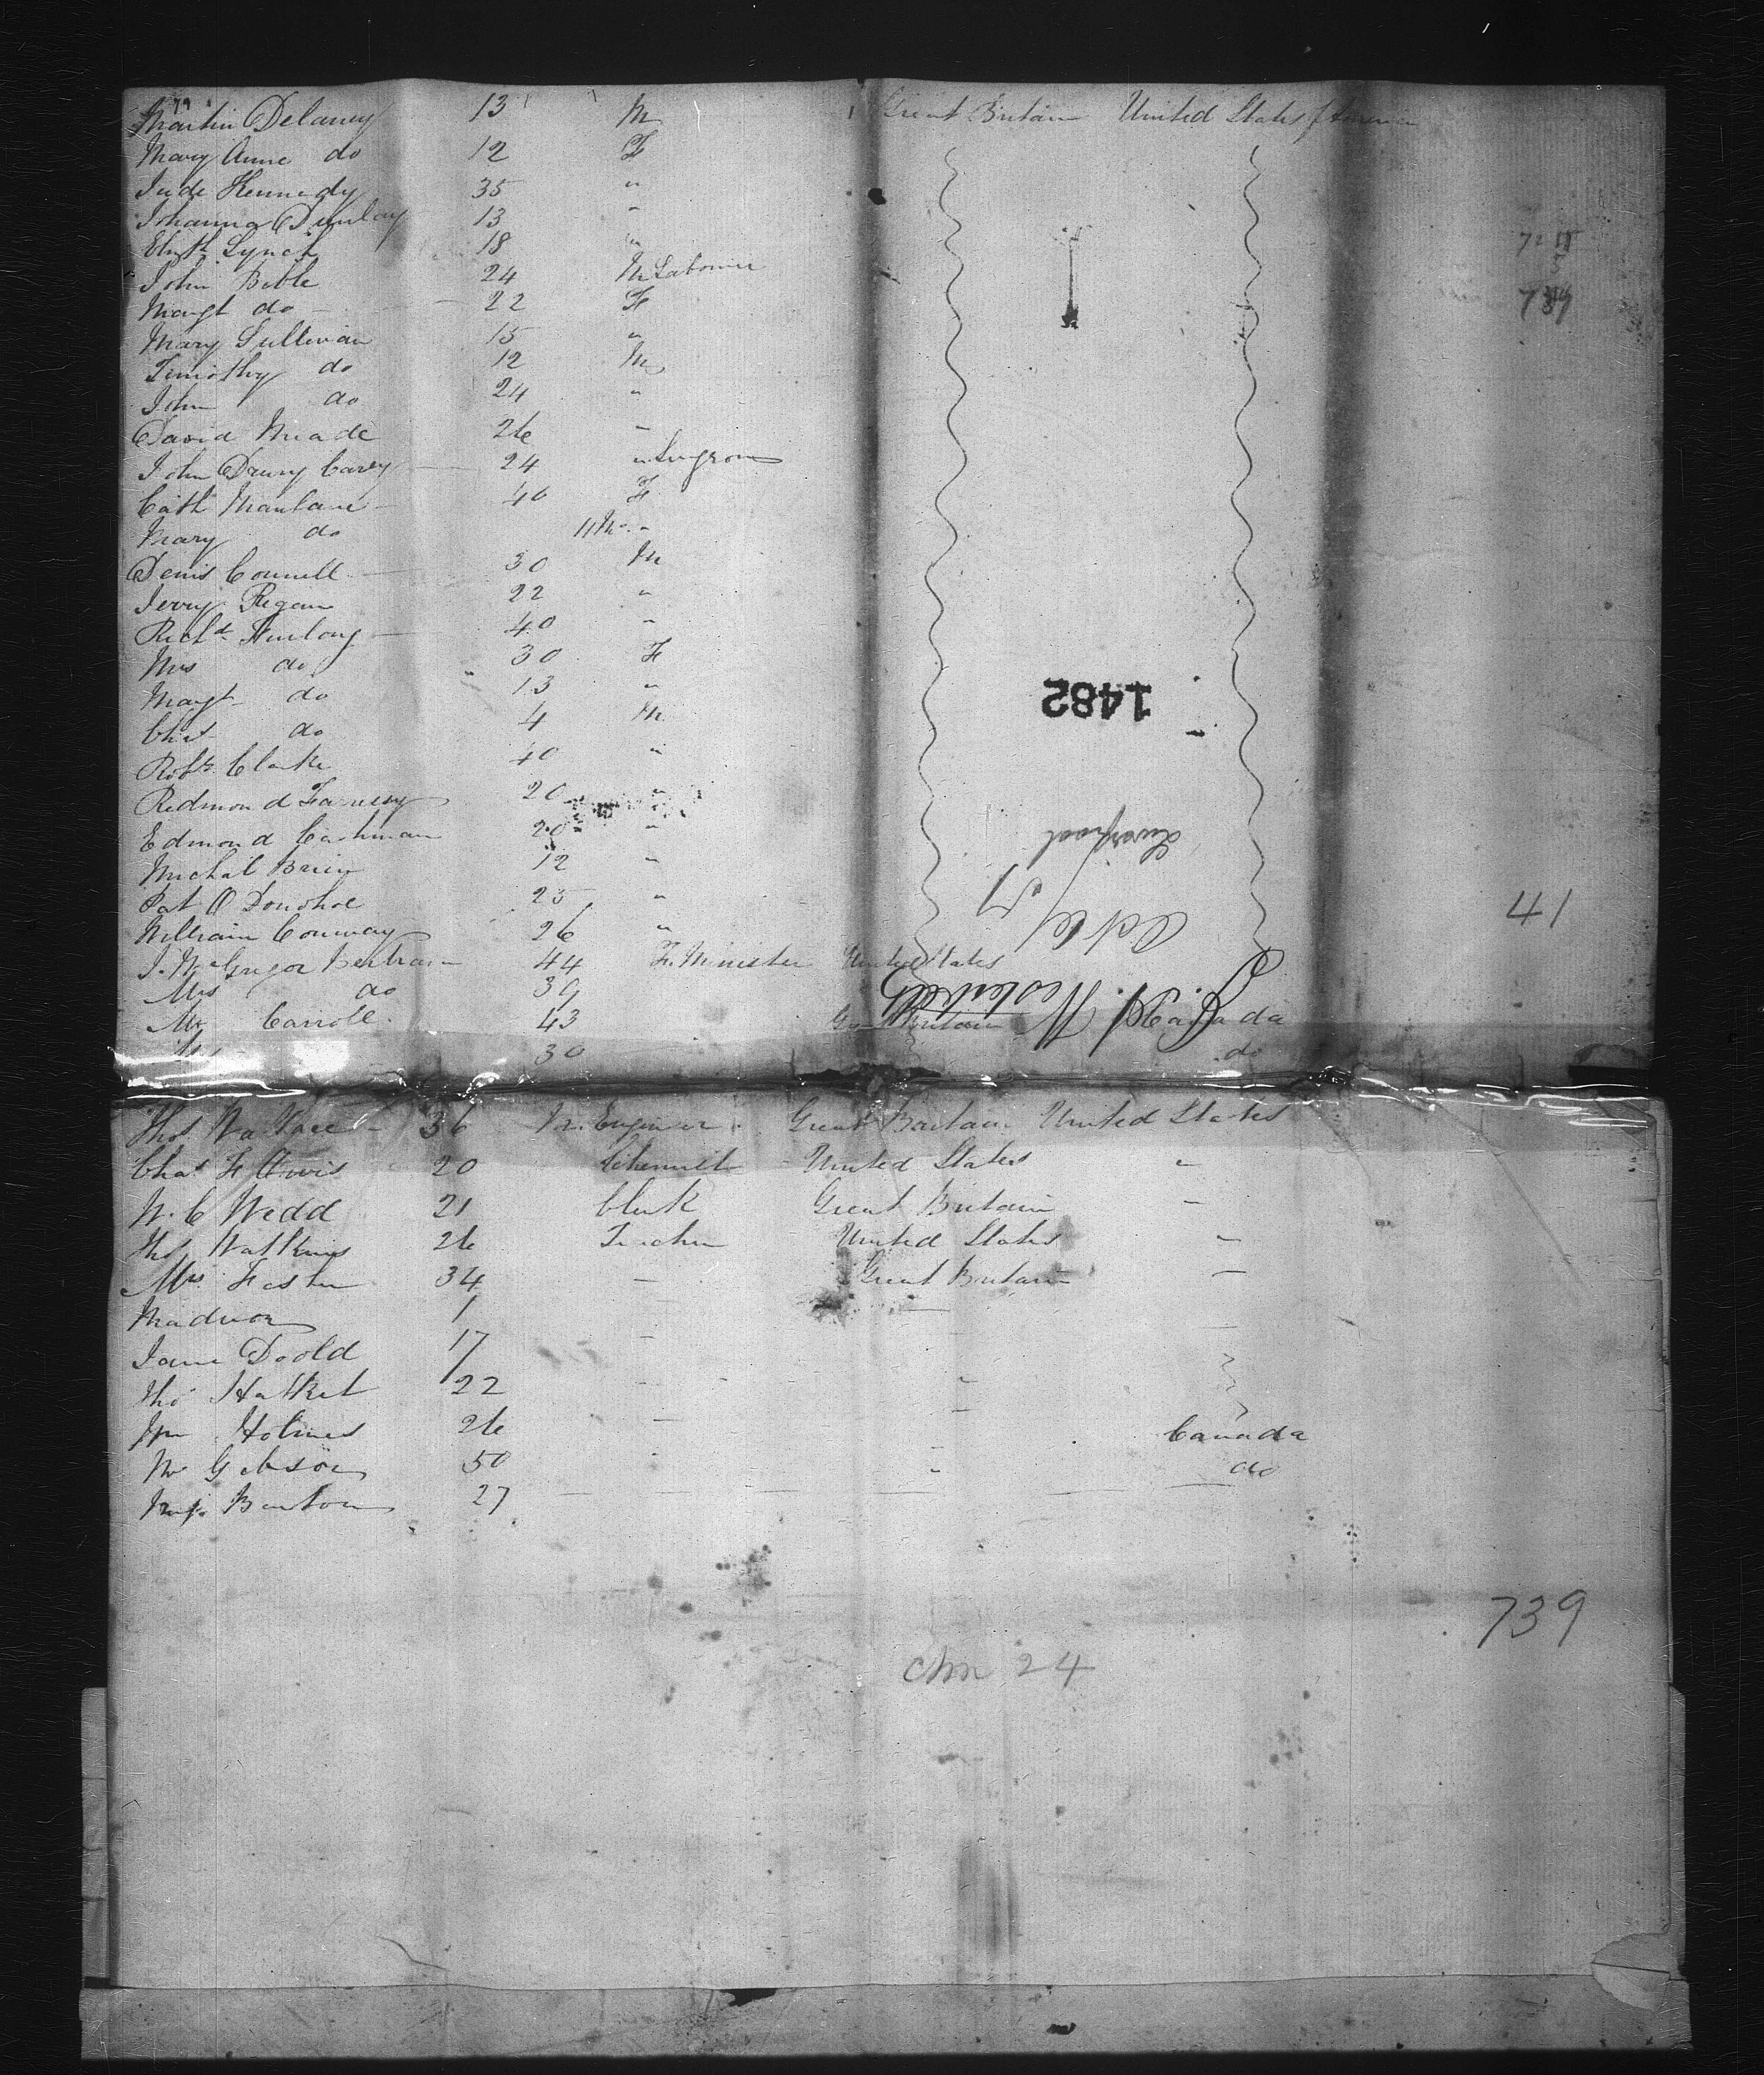 Martin Delaney 13 M Great Britain United States of America
Mary Anne do 12 F
Jude Kennedy 35 "
Johanna 13 "
Elizth Lynch 18 "
John Beble 24 M Labourer
Margt do 22 F
Mary Sullivan 15 "
Timothy do 12 M
John do 24 "
David Meade 26 "
John Drury Carey 24 " Surgeon
Cath 40 F
Mary do 11 Mo "
Denis Connell 30 M
Jerry Regan 22 "
Richd Furlong 40 "
Mrs do 30 F
Margt do 13 "
Chas do 4 M
Robt Clarke 40 "
Redmond 20 "
Edmond Cashman 20 "
Michal Brien 12 "
Pat O Donohoe 25 "
William Conway 26 "
J. McGregor Bertram 44 Minister United States
Mrs do 39
Mr Carroll 43 Gt Britain Canada
30 do
Thos Wallace 36 Engineer Great Britain United States
Chas F 20 Chemist United States "
W. C Wedd 21 Clerk Great Britain "
Thos Watkins 26 Teacher United States "
Mrs Foster 34 Great Britain
1
Jane Doold 17
Tho Hatket 22
Jon Holmes 26 Canada
Mr Gibson 50 do
Barton 27
1482
Liverpool
Oct 6/57
Westervelt
739
41
739
chn 24